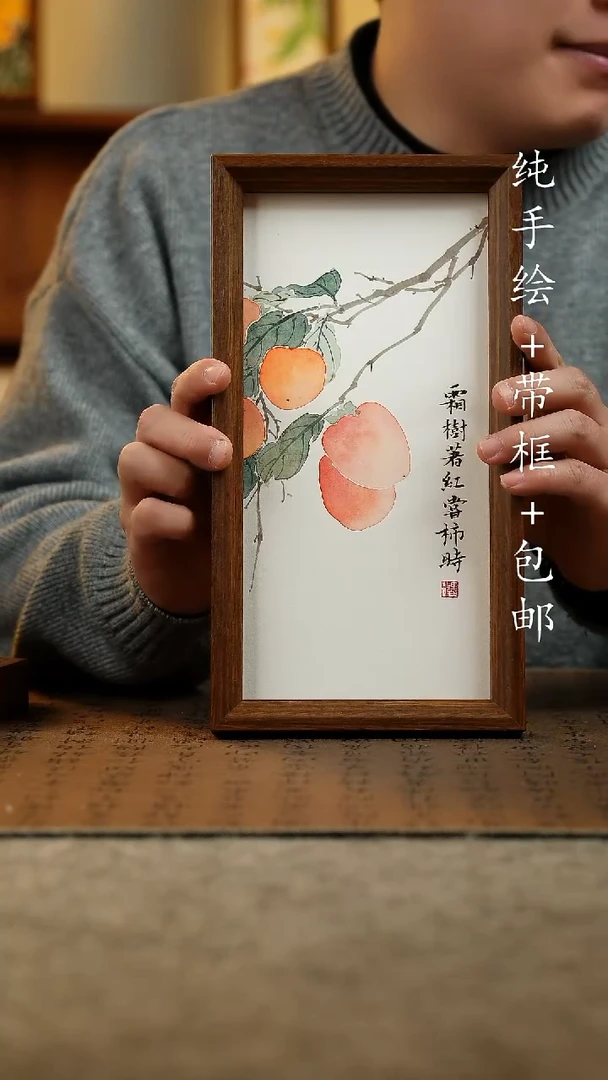 纯手绘+带框+包邮
霜樹著紅當柿時